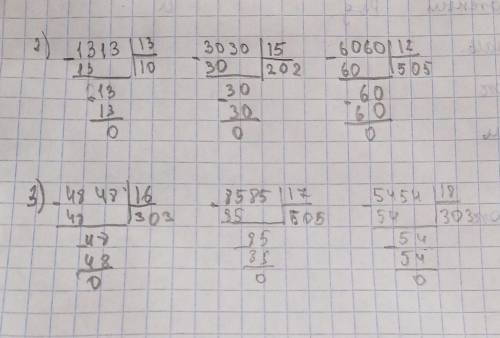 2) - 1313 | 13 - 3030 | 15 - 6060 | 12
13 | 10 30 | 202 60 | 505
- 13 - 30 - 60
13 30 60
0 0 0
3) - 48 48 | 16 - 8585 | 17 - 5454 | 18
48 | 303 85 | 505 54 | 303
48 85 - 54
48 85 54
0 0 0